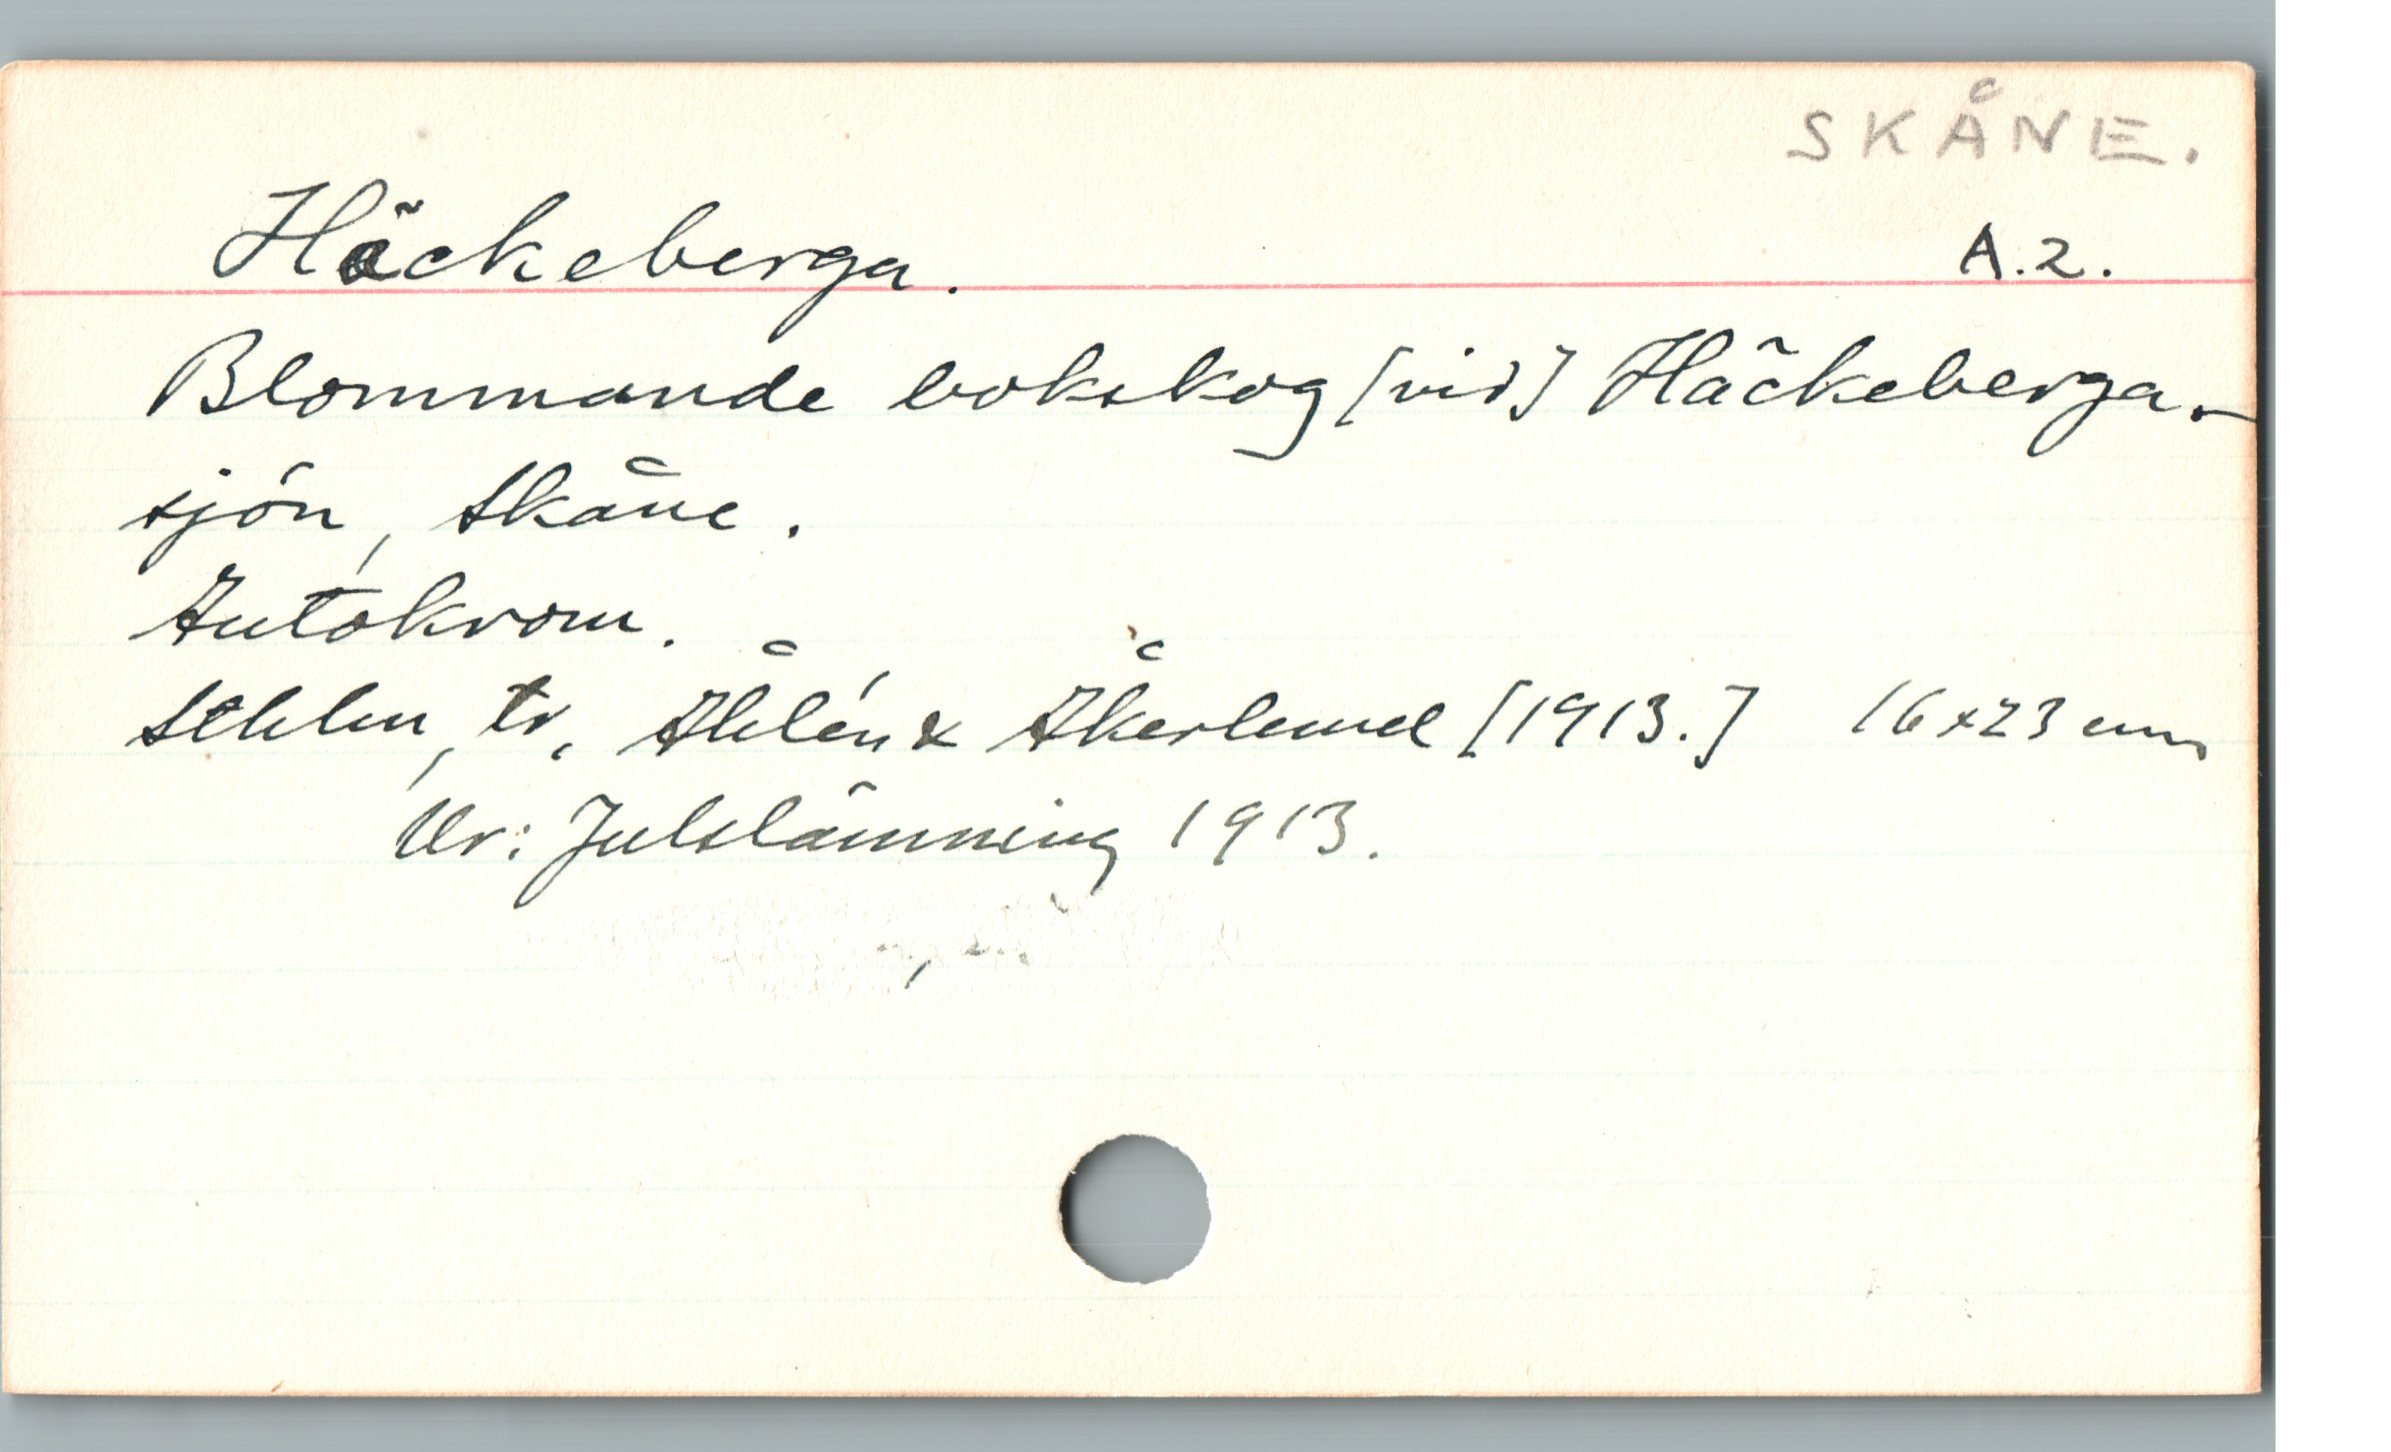 SKÅNE.
Häckeberga. A.2.
Blommande bokskog [vid] Häckeberga-
sjön, Skåne.
Autokrom.
Sthlm, tr. Åhlén & Åkerlund [1913.] 16x23 cm
Ur: Julstämning 1913.